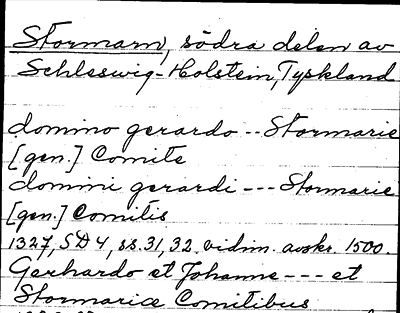 Stormarn, södra delen av
Schleswig-Holstein, Tyskland
domino gerardo -- Stormarie
[gen.] Comite
domini gerardi --- Stormarie
[gen.] Comitis
1327, SD 4, ss. 31, 32. vidim. avskr. 1500.
Gerhardo et Johanne --- et
Stormarie Comitibus